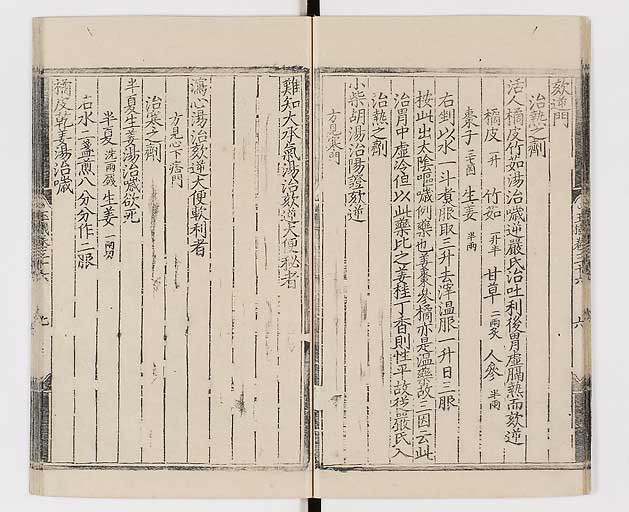 欬逆門
治熱之劑
活人橘皮竹茹湯治噦逆嚴氏治吐利後胃虛膈熱而欬逆
橘皮 一升 竹茹 一升半 甘草 二兩炙 人參 半兩
棗子 三十箇 生姜 半兩
右剉以水一斗煮服取三升去滓溫服一升日三服
按此出太陰嘔噦例藥也姜棗參橘亦是溫藥故三因云此
治胃中虛冷但以此藥比之姜桂丁香則性平故從嚴氏入
治熱之劑
小柴胡湯治陽證欬逆
方見寒門
難知大承氣湯治欬逆大便秘者
瀉心湯治欬逆大便軟利者
方見心下痞門
治寒之劑
半夏生姜湯治噦欲死
半夏 洗兩 生姜 一兩
右水二盞煎八分分作二服
橘皮乾姜湯治噦